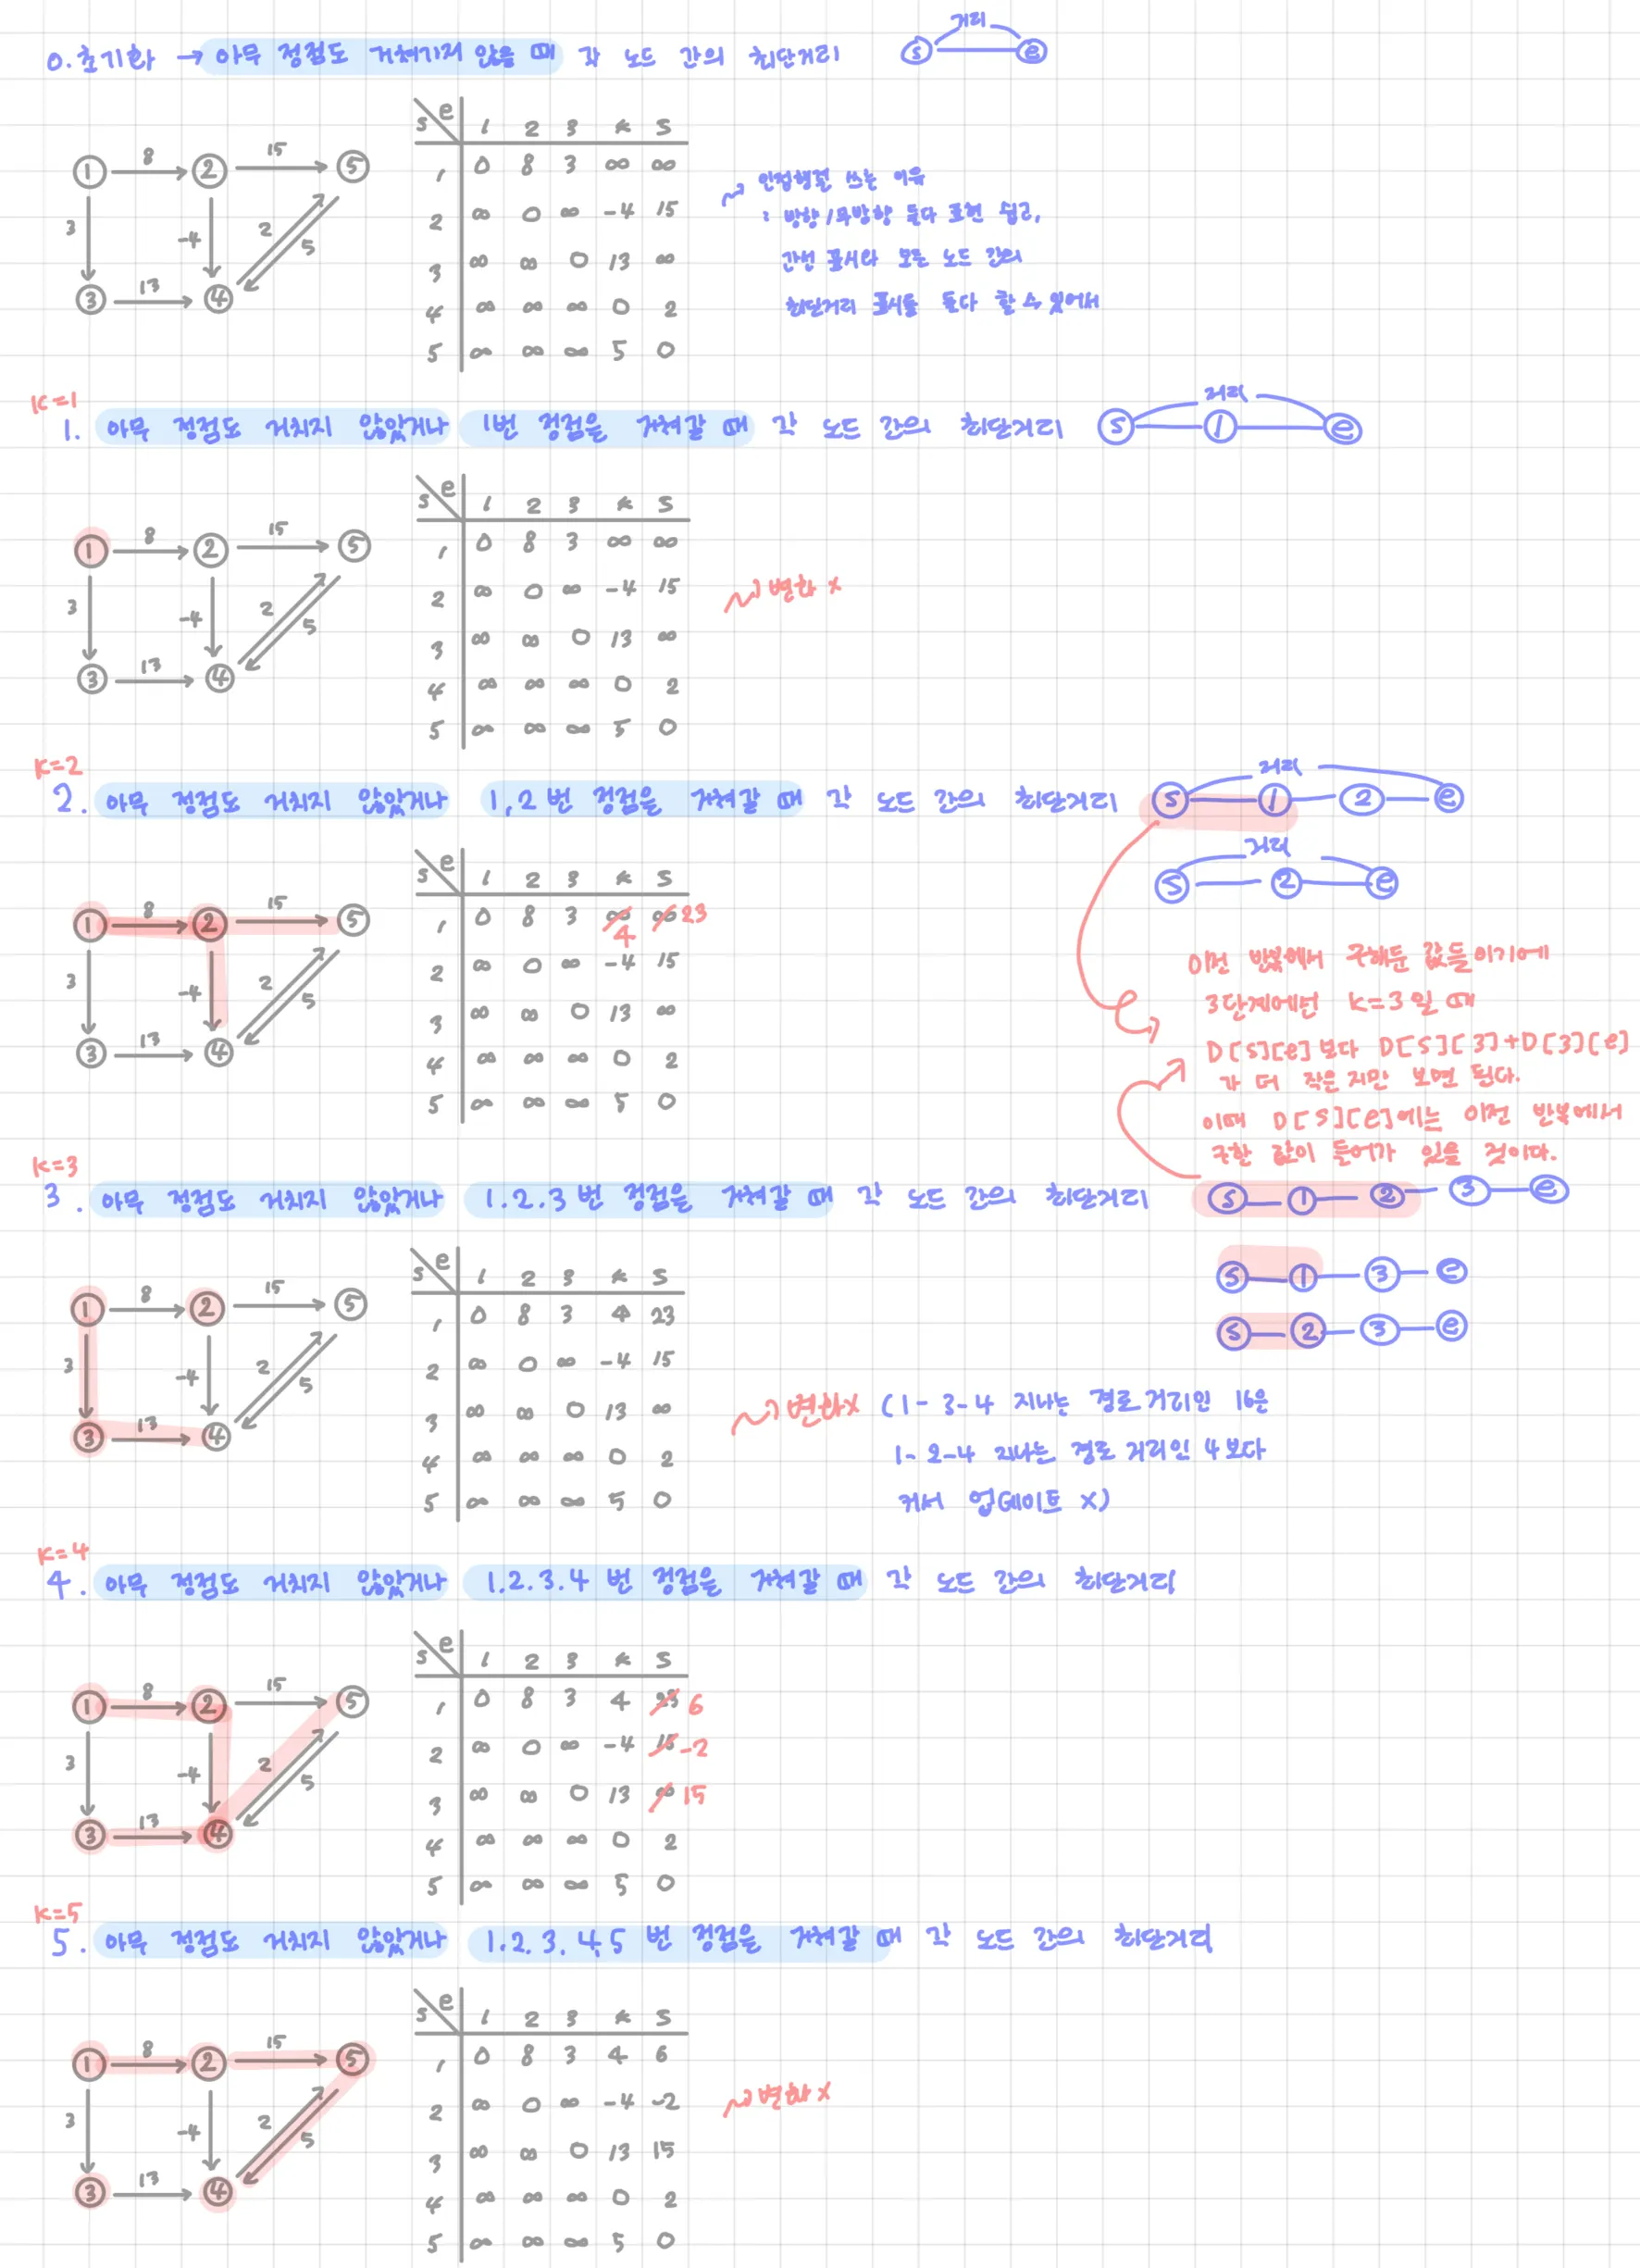 0. 초기화 → 아무 정점도 거쳐가지 않을 때 각 노드 간의 최단거리
거리
s e
s e 1 2 3 4 5
1 0 8 3 ∞ ∞
2 ∞ 0 ∞ -4 15
3 ∞ ∞ 0 13 ∞
4 ∞ ∞ ∞ 0 2
5 ∞ ∞ ∞ 5 0
1 8 2 15 5
3 -4 2 5
3 13 4
인접행렬 쓰는 이유
: 방향/무방향 둘다 표현 쉽고,
간선 표시와 모든 노드 간의
최단거리 표시를 둘다 할 수 있어서
K=1
1. 아무 정점도 거치지 않았거나 1번 정점을 거쳐갈 때 각 노드 간의 최단거리
거리
s 1 e
s e 1 2 3 4 5
1 0 8 3 ∞ ∞
2 ∞ 0 ∞ -4 15
3 ∞ ∞ 0 13 ∞
4 ∞ ∞ ∞ 0 2
5 ∞ ∞ ∞ 5 0
1 8 2 15 5
3 -4 2 5
3 13 4
변화 x
K=2
2. 아무 정점도 거치지 않았거나 1,2번 정점을 거쳐갈 때 각 노드 간의 최단거리
거리
s 1 2 e
거리
s 2 e
s e 1 2 3 4 5
1 0 8 3 ∞ 4 ∞ 23
2 ∞ 0 ∞ -4 15
3 ∞ ∞ 0 13 ∞
4 ∞ ∞ ∞ 0 2
5 ∞ ∞ ∞ 5 0
1 8 2 15 5
3 -4 2 5
3 13 4
이전 반복에서 구해둔 값들이기에
3단계에선 k=3일 때
D[s][e]보다 D[s][3]+D[3][e]
가 더 작은지만 보면 된다.
이때 D[s][e]에는 이전 반복에서
구한 값이 들어가 있을 것이다.
K=3
3. 아무 정점도 거치지 않았거나 1.2.3번 정점을 거쳐갈 때 각 노드 간의 최단거리
s 1 2 3 e
s 1 3 e
s 2 3 e
s e 1 2 3 4 5
1 0 8 3 4 23
2 ∞ 0 ∞ -4 15
3 ∞ ∞ 0 13 ∞
4 ∞ ∞ ∞ 0 2
5 ∞ ∞ ∞ 5 0
1 8 2 15 5
3 -4 2 5
3 13 4
변화x (1-3-4 지나는 경로 거리인 16은
1-2-4 지나는 경로 거리인 4보다
커서 업데이트 x)
K=4
4. 아무 정점도 거치지 않았거나 1.2.3.4번 정점을 거쳐갈 때 각 노드 간의 최단거리
s e 1 2 3 4 5
1 0 8 3 4 23 6
2 ∞ 0 ∞ -4 15 -2
3 ∞ ∞ 0 13 ∞ 15
4 ∞ ∞ ∞ 0 2
5 ∞ ∞ ∞ 5 0
1 8 2 15 5
3 -4 2 5
3 13 4
K=5
5. 아무 정점도 거치지 않았거나 1.2.3.4,5번 정점을 거쳐갈 때 각 노드 간의 최단거리
s e 1 2 3 4 5
1 0 8 3 4 6
2 ∞ 0 ∞ -4 -2
3 ∞ ∞ 0 13 15
4 ∞ ∞ ∞ 0 2
5 ∞ ∞ ∞ 5 0
1 8 2 15 5
3 -4 2 5
3 13 4
변화x